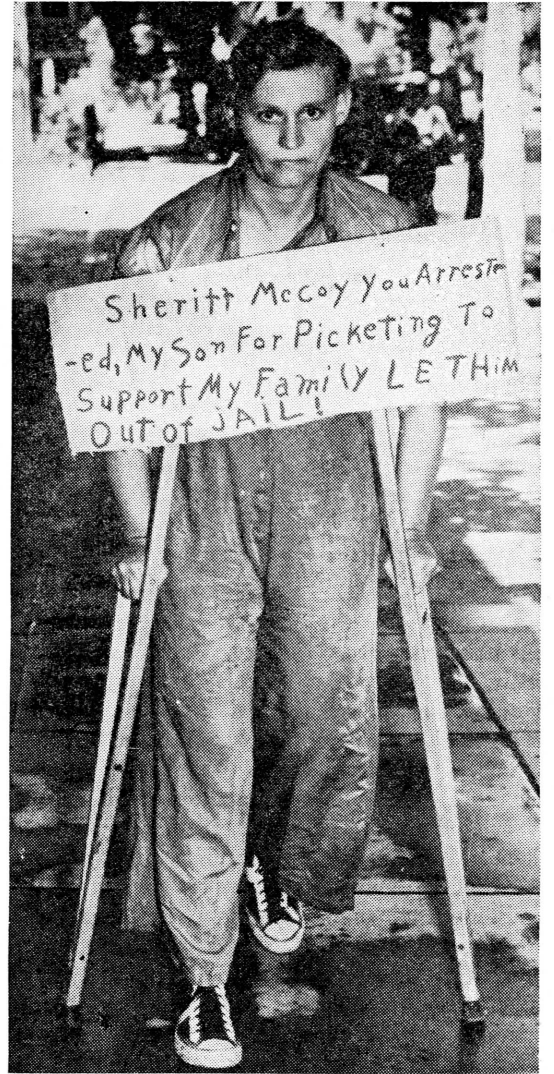 Sheriff McCoy You Arrest-
-ed, My Son For Picketing To
Support My Family LET HiM
Out of JAIL!